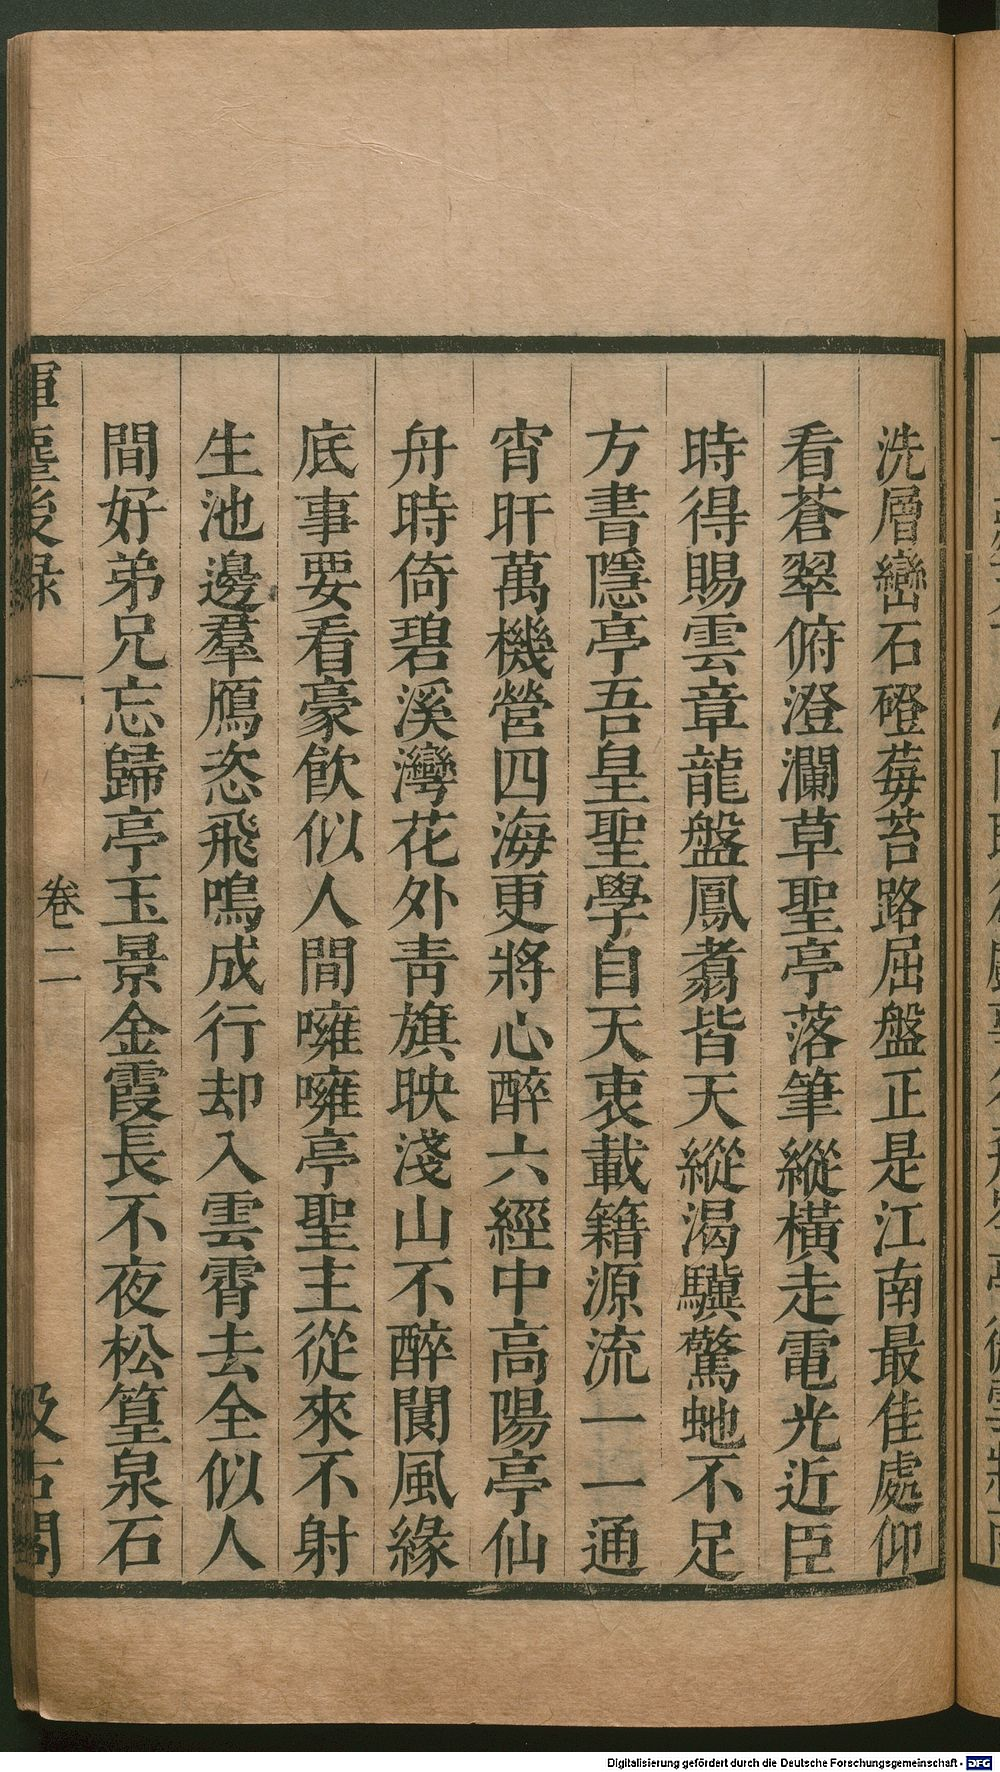 洗層巒石磴莓苔路屈盤正是江南最佳處仰
看蒼翠俯澄瀾草聖亭落筆縱橫走電光近臣
時得賜雲章龍盤鳳翥皆天縱渴驥驚虵不足
方書隱亭吾皇聖學自天衷載籍源流一一通
宵旰萬機營四海更將心醉六經中高陽亭仙
舟時倚碧溪灣花外靑旗映淺山不醉閬風緣
底事要看豪飲似人間噰噰亭聖主從來不射
生池邊羣鴈恣飛鳴成行却入雲霄去全似人
間好弟兄忘歸亭玉景金霞長不夜松篁泉石
揮麈後錄
卷二
汲古閣
Digitalisierung gefördert durch die Deutsche Forschungsgemeinschaft - DFG